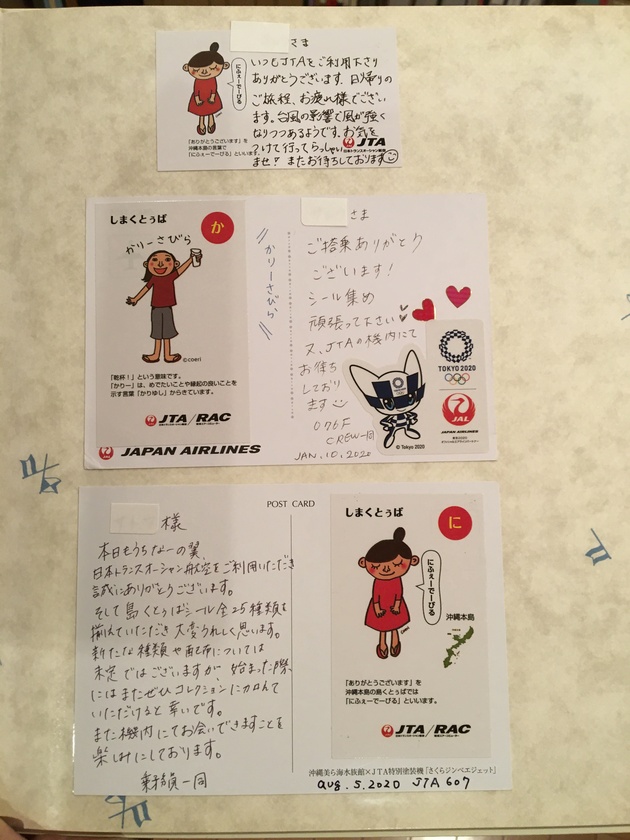 さま
いつもJTAをご利用下さり
ありがとうございます。日帰りの
ご旅程、お疲れ様でござい
ます。台風の影響で風が強く
なりつつあるようです。お気を
つけて行ってらっしゃい
ませ! またお待ちしております
にふぇーでーびる
「ありがとうございます」を
沖縄本島の言葉で
「にふぇーでーびる」といいます。
JTA
日本トランスオーシャン航空
しまくとぅば
か
かりーさびら
©coeri
「乾杯!」という意味です。
「かりー」は、めでたいことや縁起の良いことを
示す言葉「かりゆし」からきています。
JTA/RAC
JAPAN AIRLINES
かりーさびら
さま
ご搭乗ありがとう
ございます!
シール集め
頑張って下さい
又、JTAの機内にて
お待ち
しており
ます
076F
CREW一同
JAN.10.2020
TOKYO 2020
JAL
JAPAN AIRLINES
© Tokyo 2020
POST CARD
様
本日もうちなーの翼、
日本トランスオーシャン航空をご利用いただき
誠にありがとうございます。
そして島くとぅばシール全25種類も
揃えていただき大変うれしく思います。
新たな種類や配布については
未定ではございますが、始まった際
にはまたぜひコレクションに加えて
いただけると幸いです。
また機内にてお会いできますことを
楽しみにしております。
乗務員一同
しまくとぅば
に
にふぇーでーびる
沖縄本島
「ありがとうございます」を
沖縄本島の島くとぅばでは
「にふぇーでーびる」といいます。
JTA/RAC
沖縄美ら海水族館×JTA特別塗装機「さくらジンベエジェット」
aug.5.2020 JTA 607